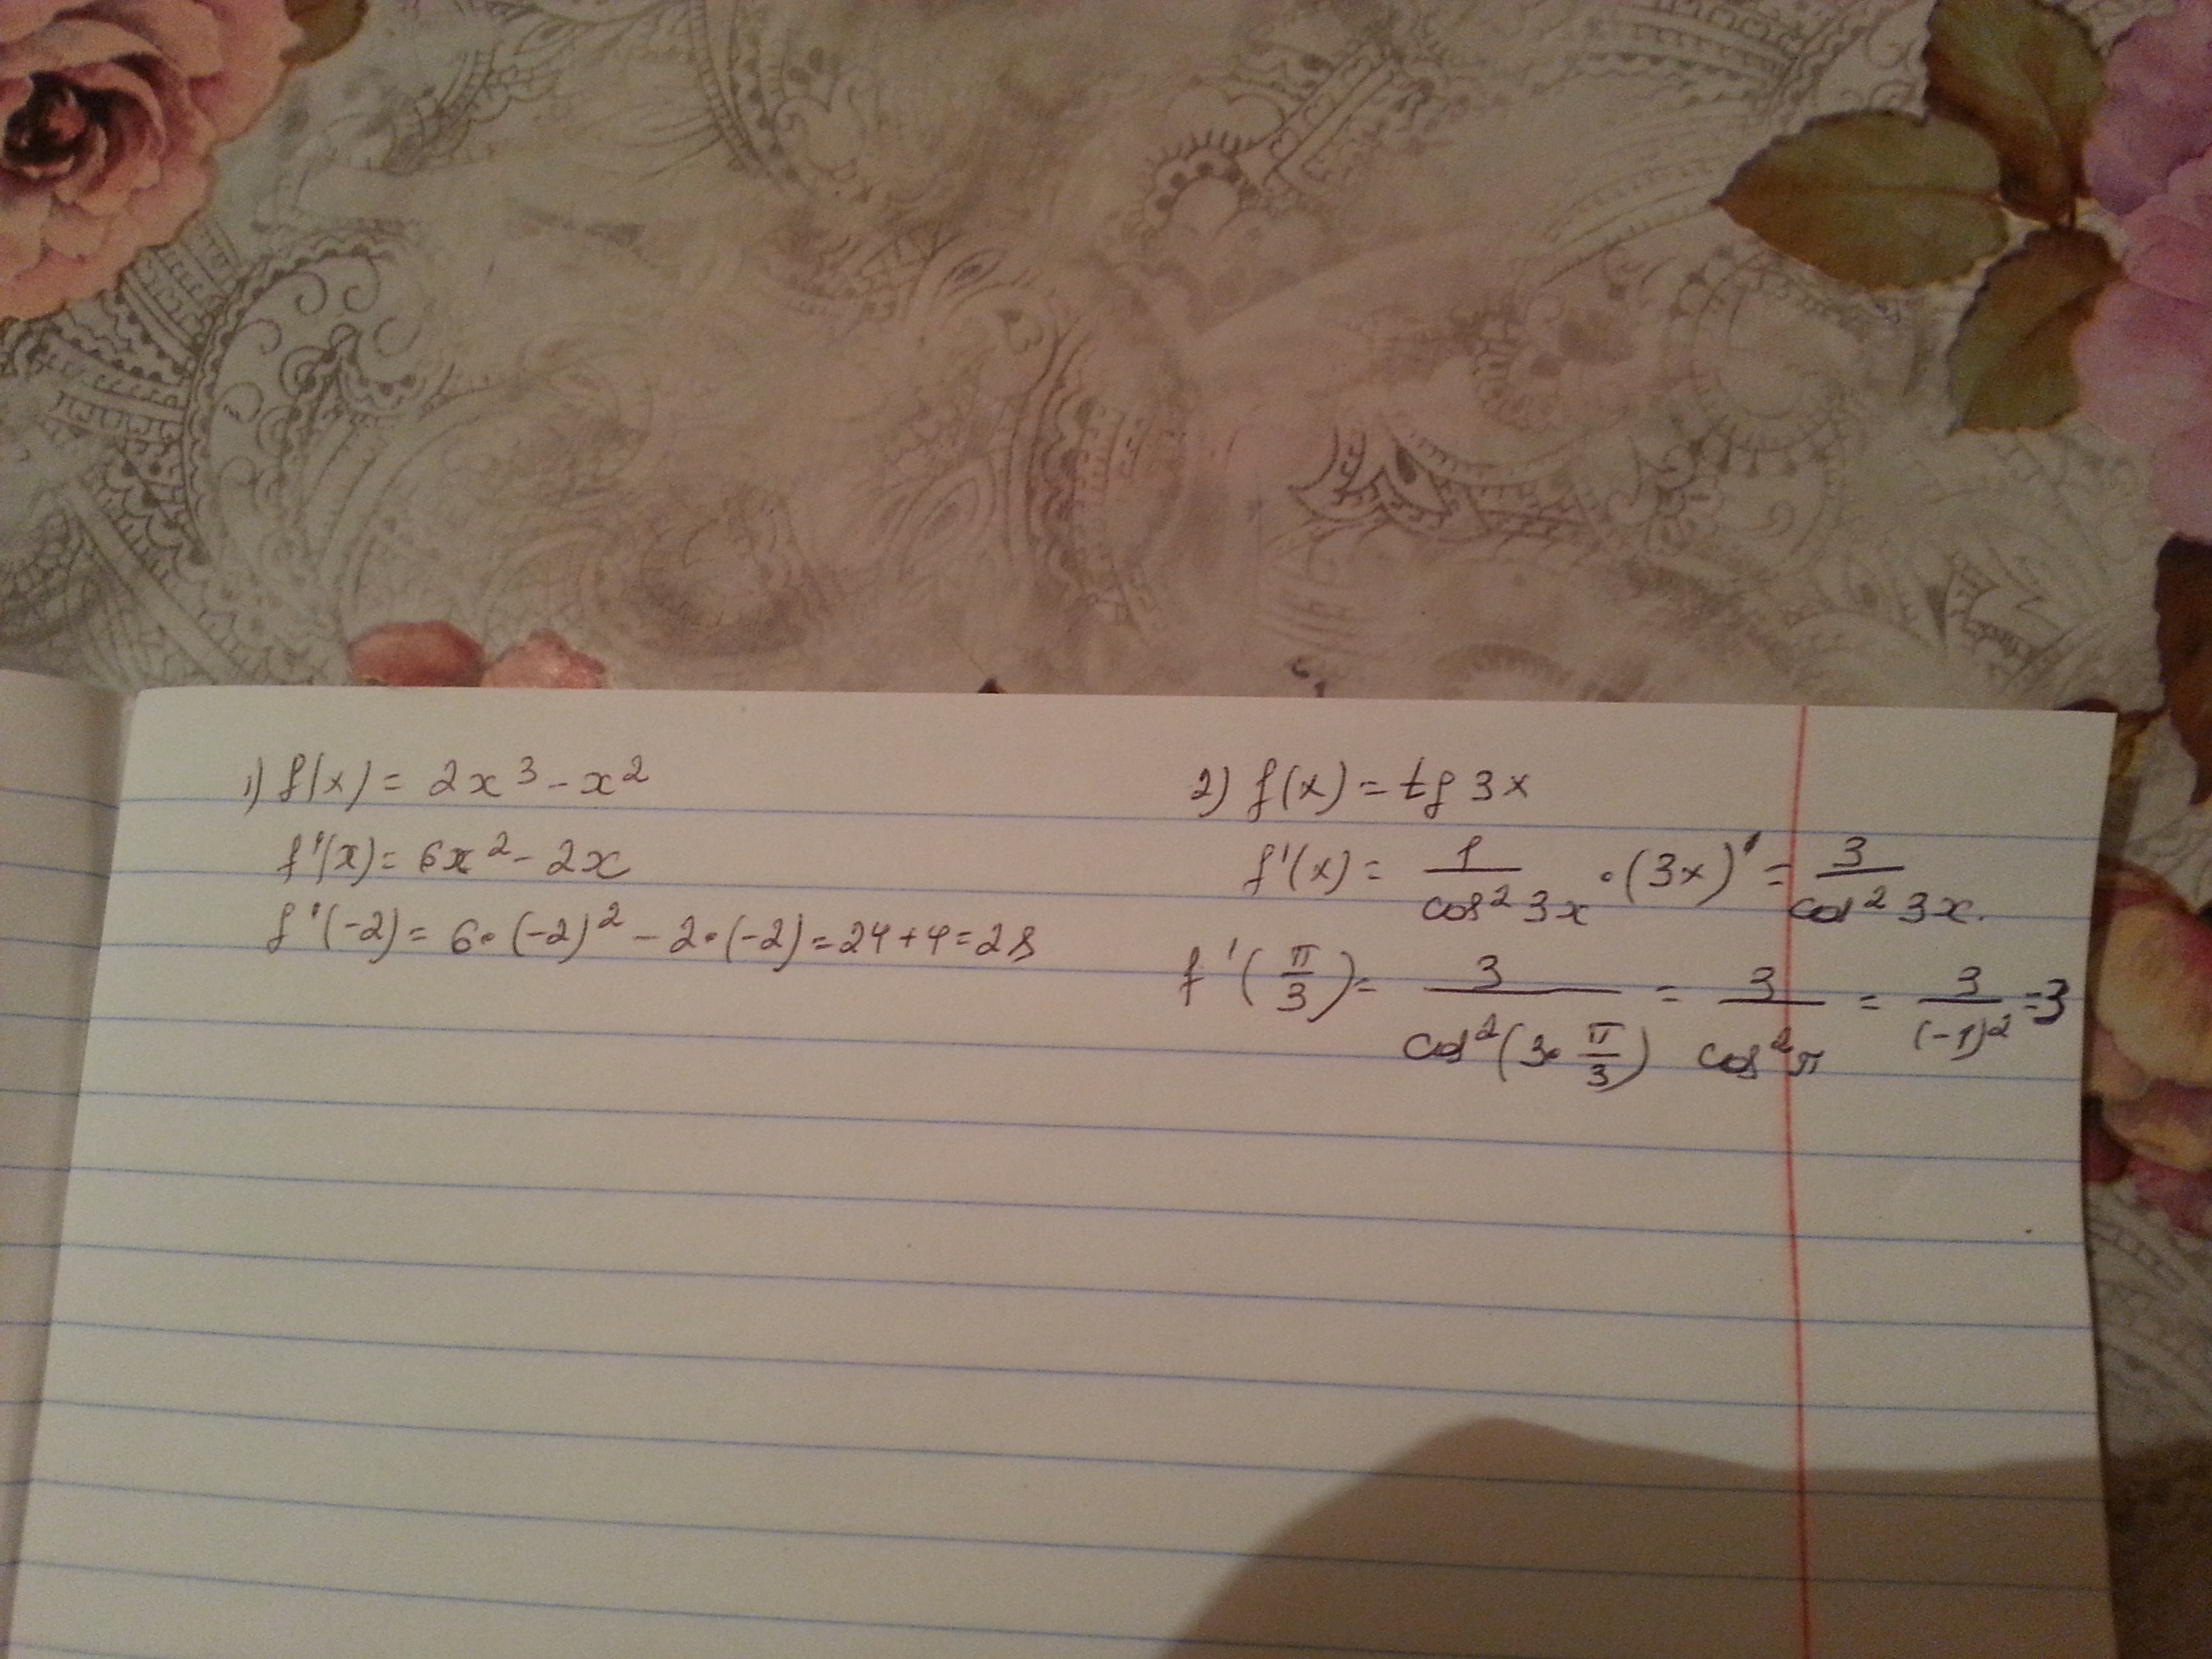 1) f(x) = 2x³ - x²
f'(x) = 6x² - 2x
f'(-2) = 6·(-2)² - 2·(-2) = 24+4 = 28
2) f(x) = tg 3x
f'(x) = 1/cos² 3x · (3x)' = 3/cos² 3x.
f'(π/3) = 3/cos²(3·π/3) = 3/cos² π = 3/(-1)² = 3